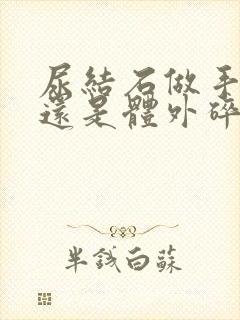 尿結石做手
還是體外碎
半錢白蘇